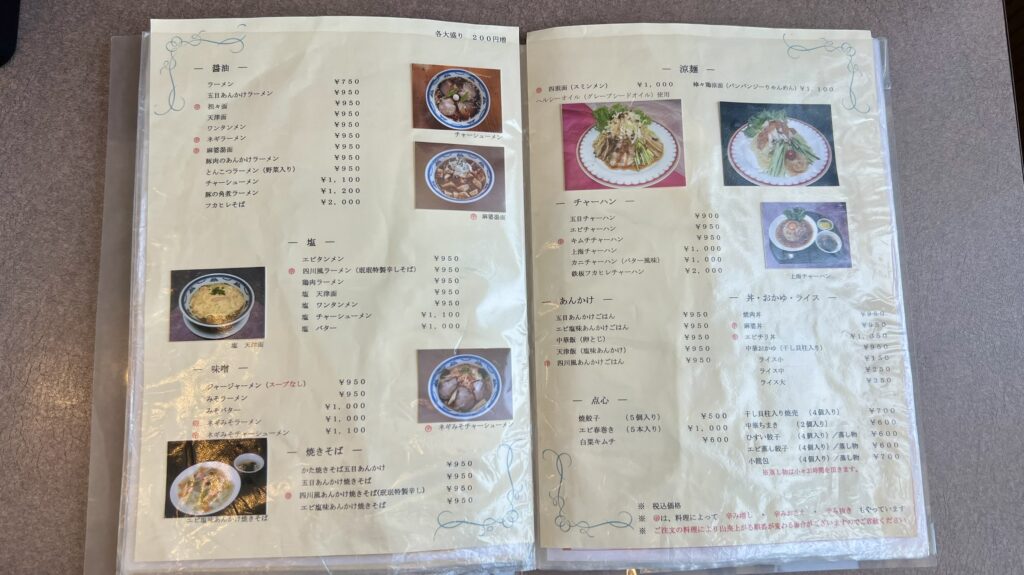 各大盛り 200円増
― 醤油 ―
ラーメン ¥750
五目あんかけラーメン ¥950
辛 担々面 ¥950
天津面 ¥950
ワンタンメン ¥950
辛 ネギラーメン ¥950
辛 麻婆湯面 ¥950
豚肉のあんかけラーメン ¥950
とんこつラーメン(野菜入り) ¥950
チャーシューメン ¥1,100
豚の角煮ラーメン ¥1,200
フカヒレそば ¥2,000
チャーシューメン
辛 麻婆湯面
― 塩 ―
エビタンメン ¥950
辛 四川風ラーメン(珉珉特製辛しそば) ¥950
鶏肉ラーメン ¥950
塩 天津面 ¥950
塩 ワンタンメン ¥950
塩 チャーシューメン ¥1,100
塩 バター ¥1,000
塩 天津面
― 味噌 ―
ジャージャーメン(スープなし) ¥950
みそラーメン ¥950
みそバター ¥1,000
辛 ネギみそラーメン ¥1,000
辛 ネギみそチャーシューメン ¥1,100
辛 ネギみそチャーシューメン
― 焼きそば ―
かた焼きそば五目あんかけ ¥950
五目あんかけ焼きそば ¥950
辛 四川風あんかけ焼きそば(珉珉特製辛し) ¥950
エビ塩味あんかけ焼きそば ¥950
エビ塩味あんかけ焼きそば
― 涼麺 ―
辛 四涼面(スミンメン) ¥1,000
ヘルシーオイル(グレープシードオイル)使用
棒々鶏涼面(バンバンジーりゃんめん) ¥1,100
― チャーハン ―
五目チャーハン ¥900
エビチャーハン ¥950
辛 キムチチャーハン ¥950
上海チャーハン ¥1,000
カニチャーハン(バター風味) ¥1,000
鉄板フカヒレチャーハン ¥2,000
上海チャーハン
― あんかけ ―
五目あんかけごはん ¥950
エビ塩味あんかけごはん ¥950
中華飯(卵とじ) ¥950
天津飯(塩味あんかけ) ¥950
辛 四川風あんかけごはん ¥950
― 丼・おかゆ・ライス ―
焼肉丼 ¥950
辛 麻婆丼 ¥950
辛 エビチリ丼
中華おかゆ(干し貝柱入り) ¥950
ライス小 ¥150
ライス中
ライス大
― 点心 ―
焼餃子 (5個入り) ¥500
エビ春巻き (5本入り) ¥1,000
白菜キムチ ¥600
干し貝柱入り焼売 (4個入り) ¥700
中華ちまき (2個入り) ¥600
ひすい餃子 (4個入り)/蒸し物 ¥600
エビ蒸し餃子 (4個入り)/蒸し物 ¥600
小籠包 (4個入り)/蒸し物 ¥700
※蒸し物は小々お時間を頂きます。
※ 税込価格
※ 辛は、料理によって 辛み増し ・ 辛みおさえ ・ 辛み抜き もやっています
※ ご注文の料理により出来上がる順番が変わる場合がございますのでご容赦ください